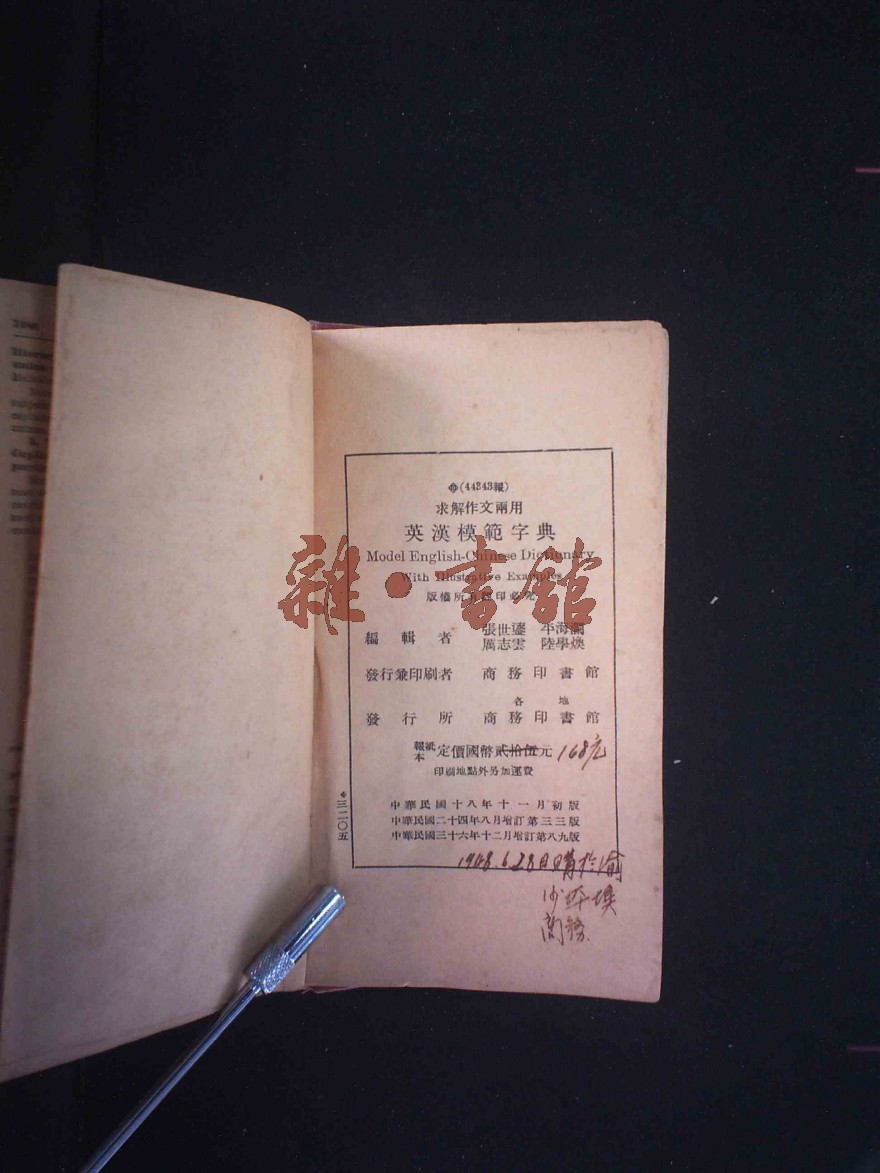 (44343報)
求解作文兩用
英漢模範字典
Model English-Chinese Dictionary
With Illustrative Examples
版權所有翻印必究
編輯者 張世鎏 平海瀾
厲志雲 陸學煥
發行兼印刷者 商務印書館
各地
發行所 商務印書館
報紙本 定價國幣貳拾伍元 168元
印刷地點外另加運費
中華民國十八年十一月初版
中華民國二十四年八月增訂第三三版
中華民國三十六年十二月增訂第八九版
三一二〇五
1948.6.28日購於渝
沙坪壩
商務
雜·書館